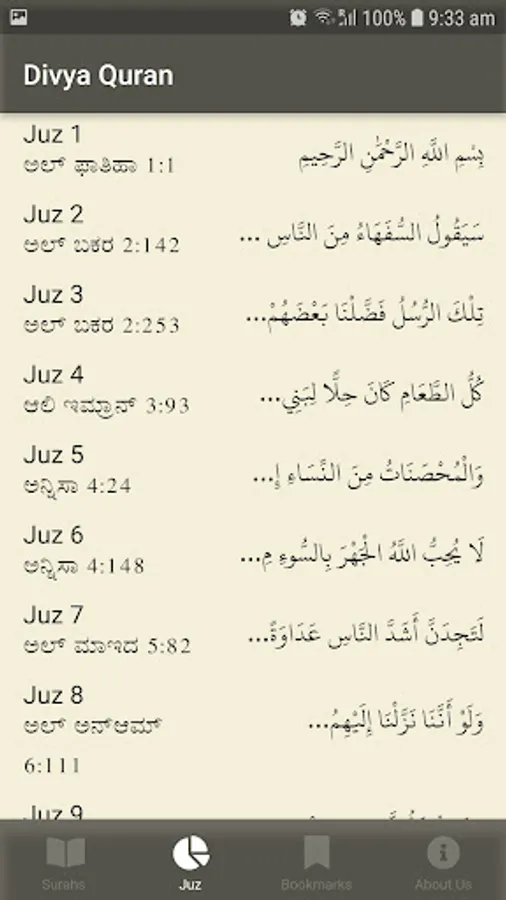 100% 9:33 am
Divya Quran
Juz 1
ಅಲ್ ಫಾತಿಹಾ 1:1
بِسْمِ اللَّهِ الرَّحْمَٰنِ الرَّحِيمِ
Juz 2
ಅಲ್ ಬಕರ 2:142
سَيَقُولُ السُّفَهَاءُ مِنَ النَّاسِ ...
Juz 3
ಅಲ್ ಬಕರ 2:253
تِلْكَ الرُّسُلُ فَضَّلْنَا بَعْضَهُمْ...
Juz 4
ಆಲಿ ಇಮ್ರಾನ್ 3:93
كُلُّ الطَّعَامِ كَانَ حِلًّا لِبَنِي...
Juz 5
ಅನ್ನಿಸಾ 4:24
وَالْمُحْصَنَاتُ مِنَ النِّسَاءِ إِ...
Juz 6
ಅನ್ನಿಸಾ 4:148
لَا يُحِبُّ اللَّهُ الْجَهْرَ بِالسُّوءِ مِ...
Juz 7
ಅಲ್ ಮಾಇದ 5:82
لَتَجِدَنَّ أَشَدَّ النَّاسِ عَدَاوَةً...
Juz 8
ಅಲ್ ಅನ್ಆಮ್
6:111
وَلَوْ أَنَّنَا نَزَّلْنَا إِلَيْهِمُ...
Juz 9
Surahs
Juz
Bookmarks
About Us